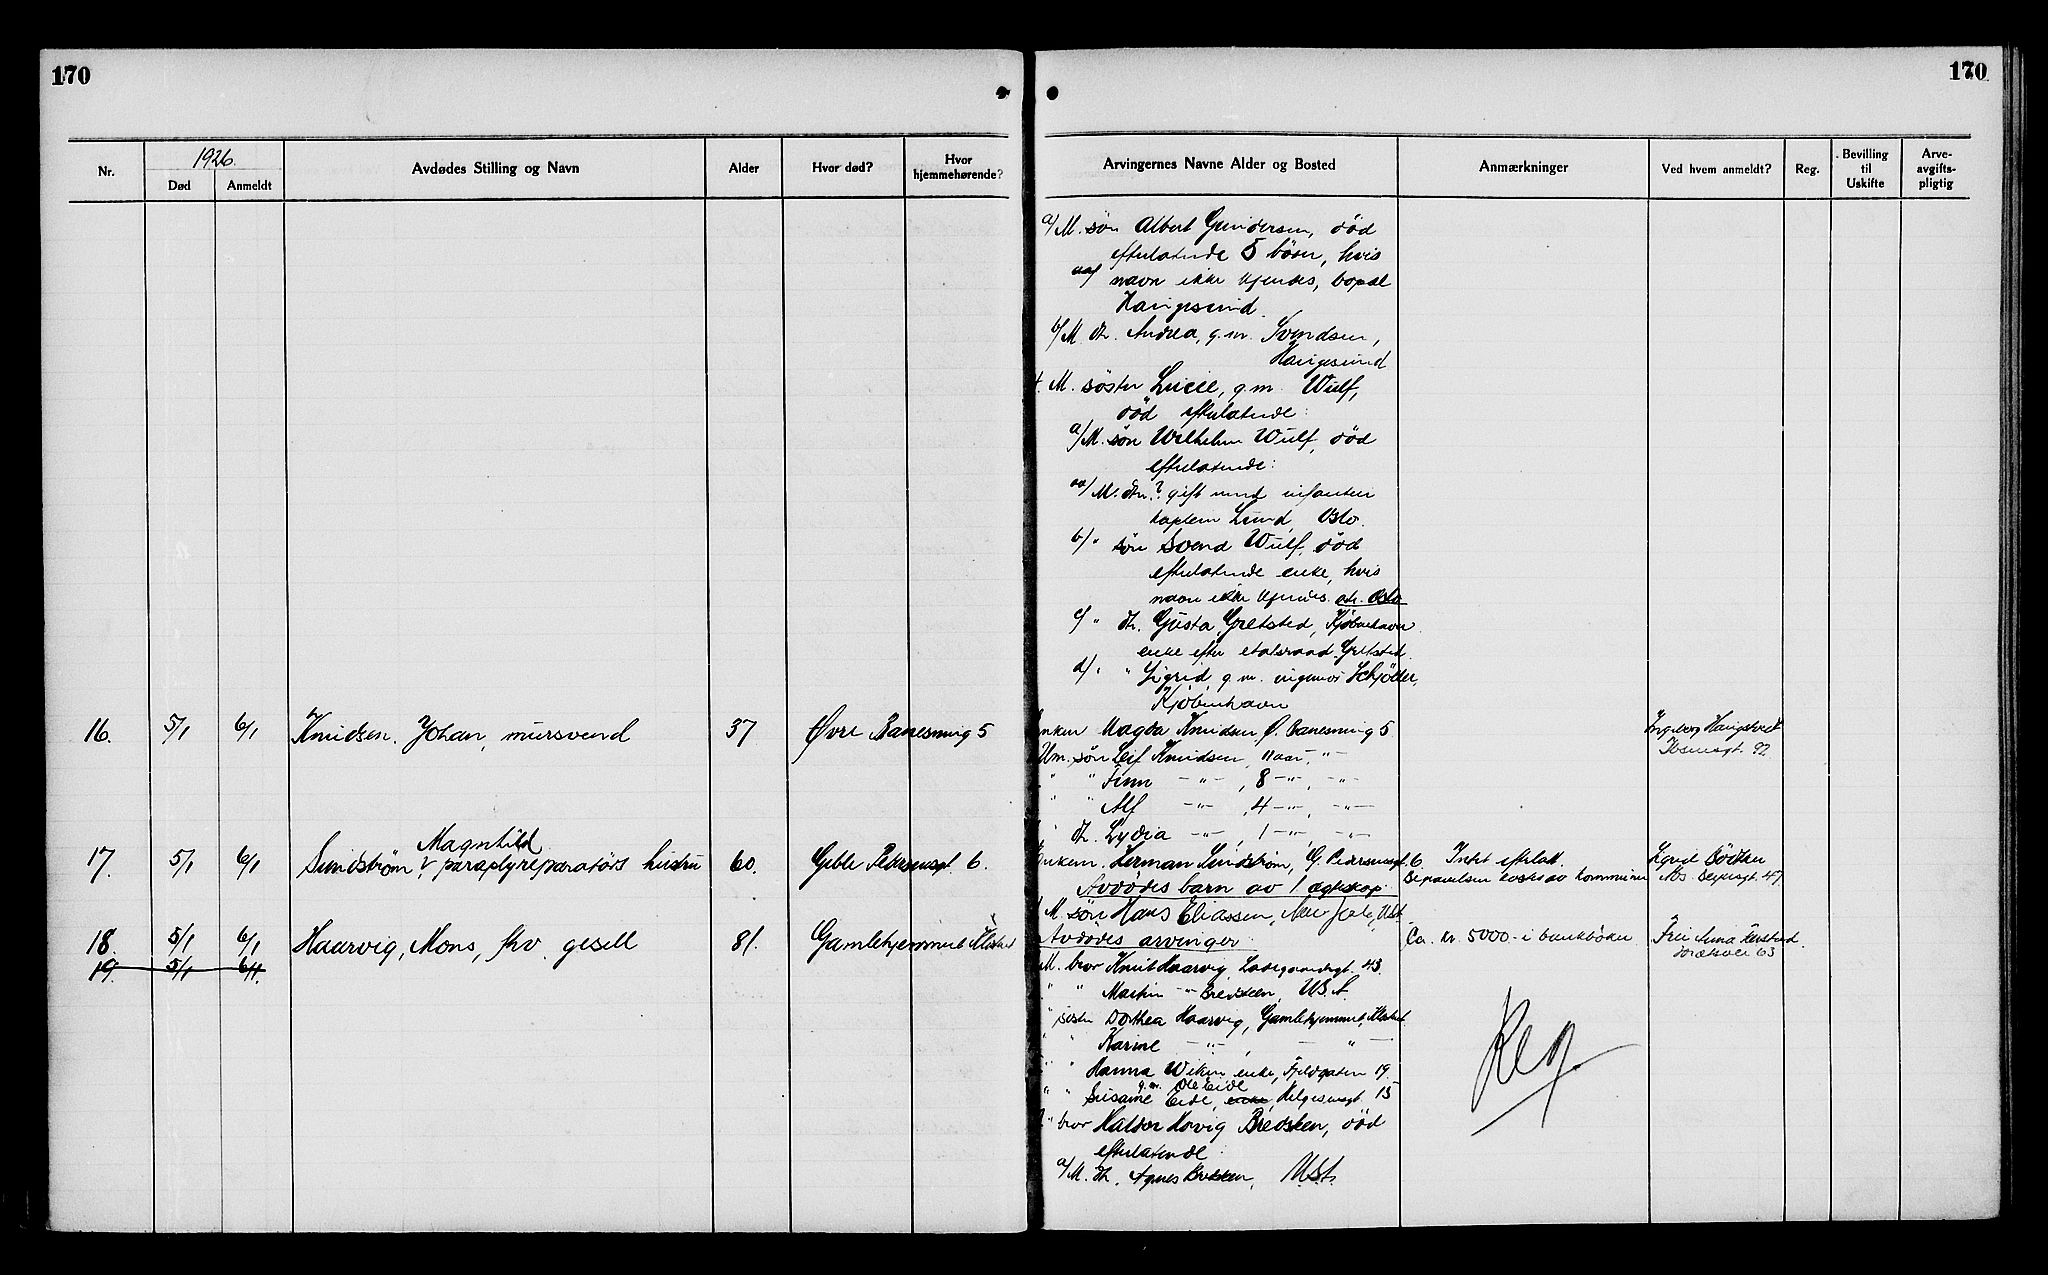 170
170
Nr.
1926.
Død
Anmeldt
Avdødes Stilling og Navn
Alder
Hvor død?
Hvor hjemmehørende?
Arvingernes Navne Alder og Bosted
Anmærkninger
Ved hvem anmeldt?
Reg.
Bevilling til Uskifte
Arve-avgifts-pligtig
a/ M. søn Albert Gundersen, død
efterlatende 5 børn, hvis
aa/ navn ikke kjendes, bopæl
Haugesund.
b/ M. dt. Andrea, g.m. Svendsen,
Haugesund
M. søster Lucie, g.m. Wulf,
død efterlatende:
a/ M. søn Wilhelm Wulf, død
efterlatende:
aa/ M. dtr.? gift med infanteri
kaptein Lund, Oslo.
b/ " søn Svend Wulf, død
efterlatende enke, hvis
navn ikke kjendes. adr. Oslo
c/ " dt. Gusta Gretsted, Kjøbenhavn
enke efter etatsraad Gretsted.
d/ " " Sigrid g.m. ingeniør Schjøtler,
Kjøbenhavn
16. 5/1 6/1 Knudsen. Johan, mursvend 37 Øvre Banesmug 5 Enken Magda Knudsen, Ø. Banesmug 5 Ingeborg Haugstvedt
Um. søn Leif Knudsen, 11 aar, -"- Ibsensgt. 92
" " Finn -"- , 8 -"-, -"-
" " Alf -"- , 4 -"-, -"-
" dt. Lydia -"- , 1 -"-, -"-
Magnhild
17. 5/1 6/1 Sundstrøm, paraplyreparatørs hustru 60. Geble Pedersensgt. 6. Enkem. Herman Sundstrøm, G. Pedersensgt. 6 Intet efterlatt. Sigrid Bødtker
Begravelsen kostes av kommunen Abs. Beyersgt. 47
Avdødes barn av 1 ægteskap
M. søn Hans Eliassen, New York, USA
18. 5/1 6/1 Haarvig, Mons, fhv. gesell 81. Gamlehjemmet Avdødes arvinger Ca. kr. 5000.- i bankbøker Fru Anna
19. 5/1 6/1. M. bror Knut Haarvig, Ladegaardsgt. 43. 63
" " Martin -"- Bredsteen, U.S.A.
" søster Dorthea Haarvig, Gamlehjemmet,
" " Karine -"- , - " -
" " Hanna Wiken enke, Fjeldgaten 19.
g.m. Ole Eide
" " Susanne Eide, enke, Helgesensgt. 15
" bror Haldor Horvig Bredsteen, død
efterlatende
a/ M. dt. Agnes Bredsteen, U.S.A.
Reg.